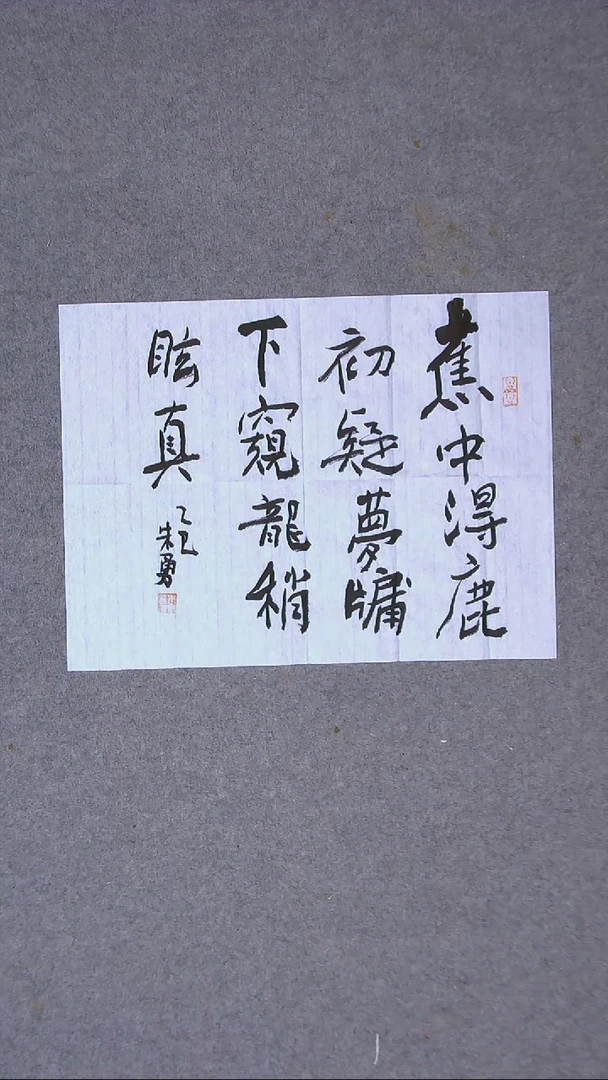 蕉中得鹿
初疑夢牖
下窺龍稍
眩真
乙巳
朱勇